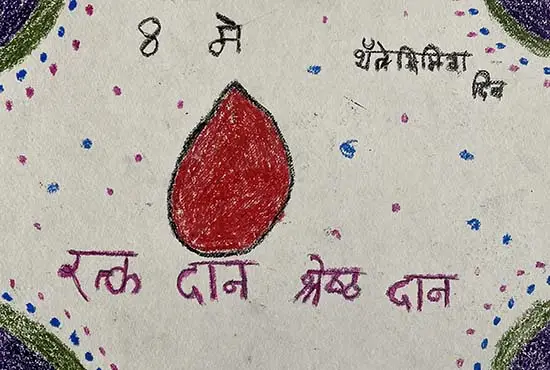 8 मे
थॅलेसिमिया
दिन
रक्त दान श्रेष्ठ दान